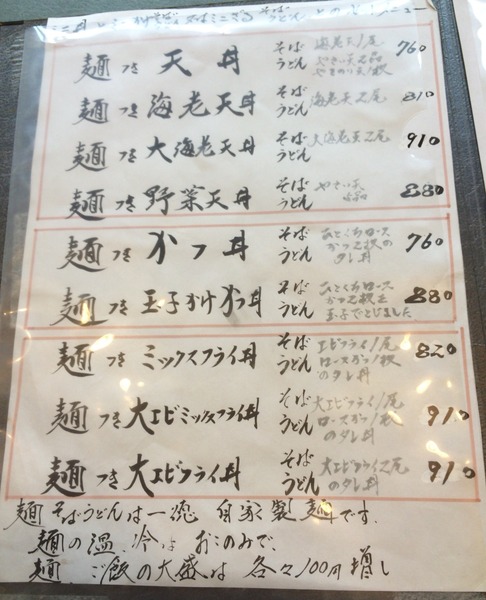 ミニ丼とミニかけそば 又はミニざるそば
うどん とのセットメニュー
麺つき 天丼 そば うどん 海老天1尾 やさい天2品 やきのり天1枚 760
麺つき 海老天丼 そば うどん 海老天2尾 810
麺つき 大海老天丼 そば うどん 大海老天2尾 910
麺つき 野菜天丼 そば うどん やさい天 880
麺つき かつ丼 そば うどん ひとくちロース かつ2枚の タレ丼 760
麺つき 玉子かけかつ丼 そば うどん ひとくちロース かつ2枚を 玉子でとじました 880
麺つき ミックスフライ丼 そば うどん エビフライ1尾 ロースかつ1枚 のタレ丼 820
麺つき 大エビミックスフライ丼 そば うどん 大エビフライ1尾 ロースかつ1枚 のタレ丼 910
麺つき 大エビフライ丼 そば うどん 大エビフライ2尾 のタレ丼 910
麺 そばうどんは一流 自家製麺です。
麺の温、冷は おこのみで、
麺、ご飯の大盛は 各々100円増し